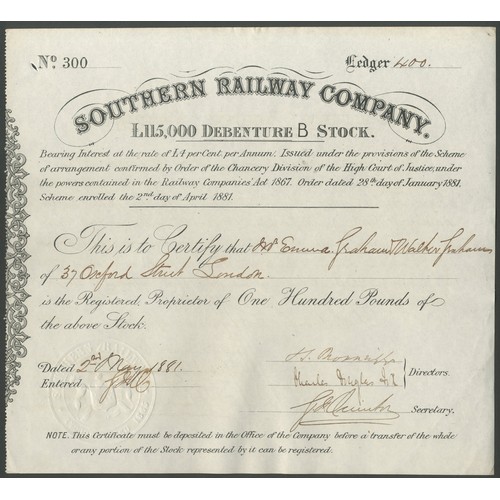 No 300 Ledger 400.
SOUTHERN RAILWAY COMPANY.
£115,000 DEBENTURE B STOCK.
Bearing Interest at the rate of £4 per Cent. per Annum. Issued under the provisions of the Scheme
of arrangement confirmed by Order of the Chancery Division of the High Court of Justice, under
the powers contained in the Railway Companies' Act 1867. Order dated 28th day of January 1881.
Scheme enrolled the 2nd day of April 1881.
This is to Certify that Emma Graham Walter Graham
of 37 Oxford Street London.
is the Registered Proprietor of One Hundred Pounds of
the above Stock.
Dated 2nd May 1881.
Entered
Directors.
Charles
Secretary.
NOTE. This Certificate must be deposited in the Office of the Company before a transfer of the whole
or any portion of the Stock represented by it can be registered.